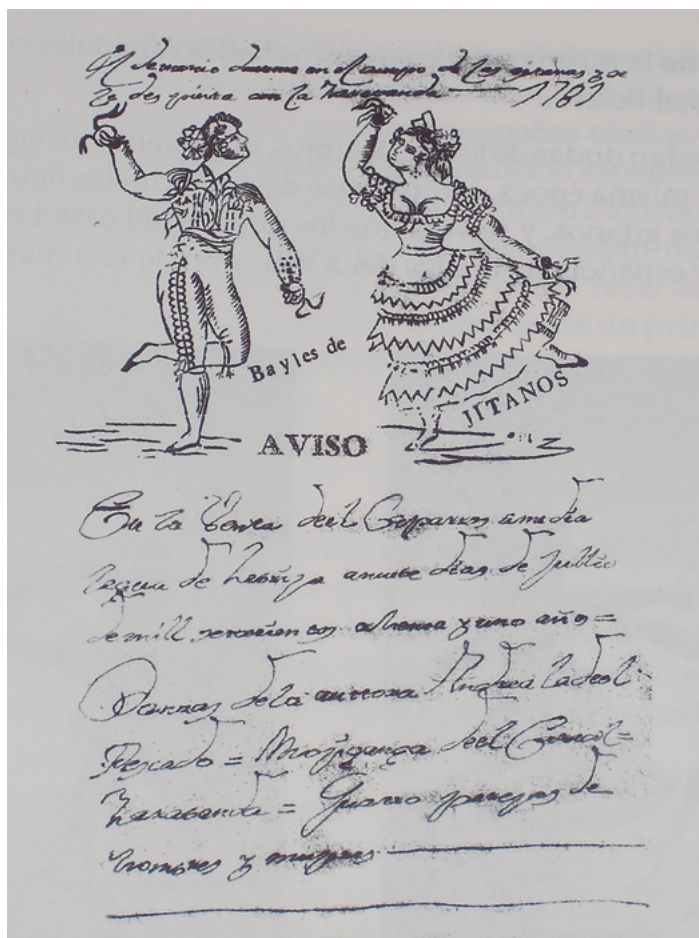 El demonio duerme en el campo de los gitanos y se
con la 1781
Bayles de
JITANOS
AVISO
En la Venta deel Caparros media
legua de Lebrija anueve dias de Jullio
demill setecientos ochenta y uno año =
Danzas dela auttora Andrea ladeel
Pescado = Mojiganga deel =
Zarabanda = Quatro parejas de
hombres y mugeres